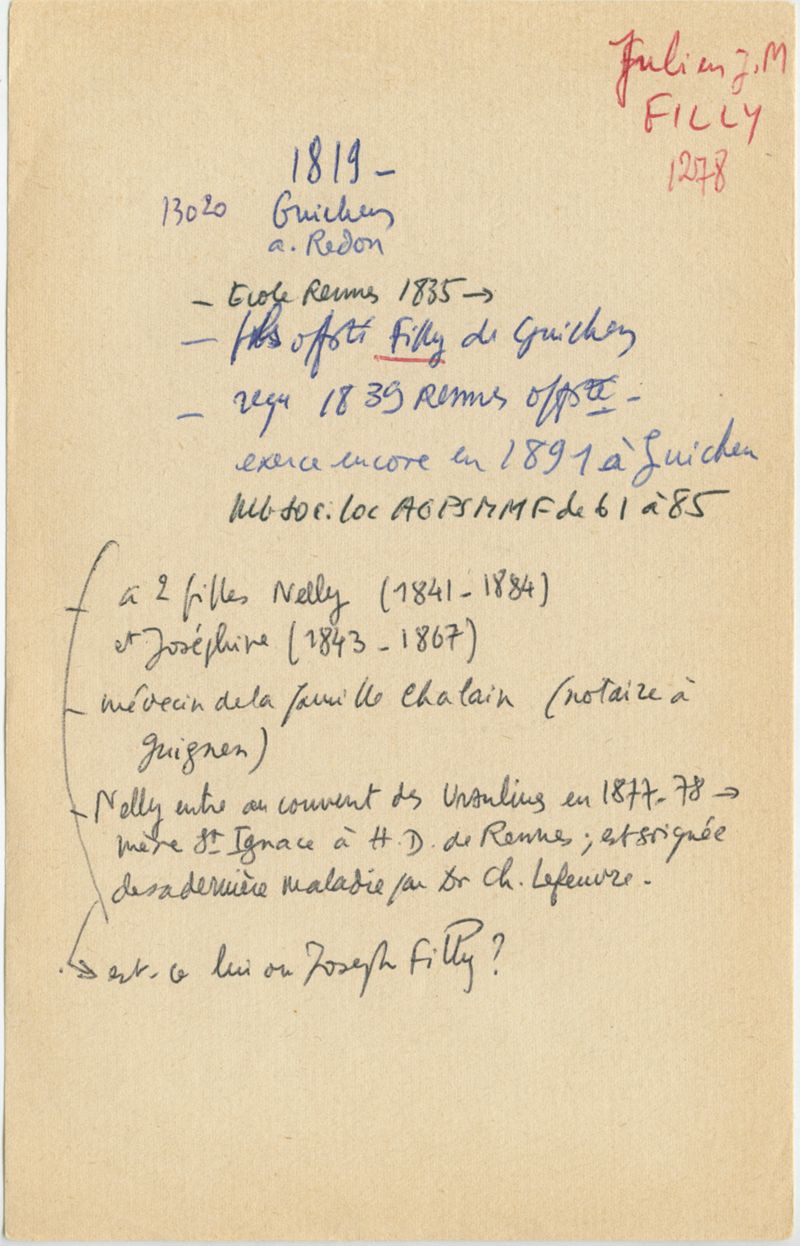 Julien J.M
FILLY
1278
1819 -
13020 Guichen
a. Redon
- Ecole Rennes 1835 →
- fils offsté Filly de Guichen
- reçu 1839 Rennes offsté -
exerce encore en 1891 à Guichen
Mb soc. loc AGPSMMF de 61 à 85
- a 2 filles Nelly (1841 - 1884)
et Joséphine (1843 - 1867)
- médecin de la famille Chalain (notaire à
Guignen)
- Nelly entre au couvent des Ursulines en 1877-78 →
mère St Ignace à H. D. de Rennes ; est soignée
de sa dernière maladie par Dr Ch. Lefeuvre.
→ est-ce lui ou Joseph Filly ?